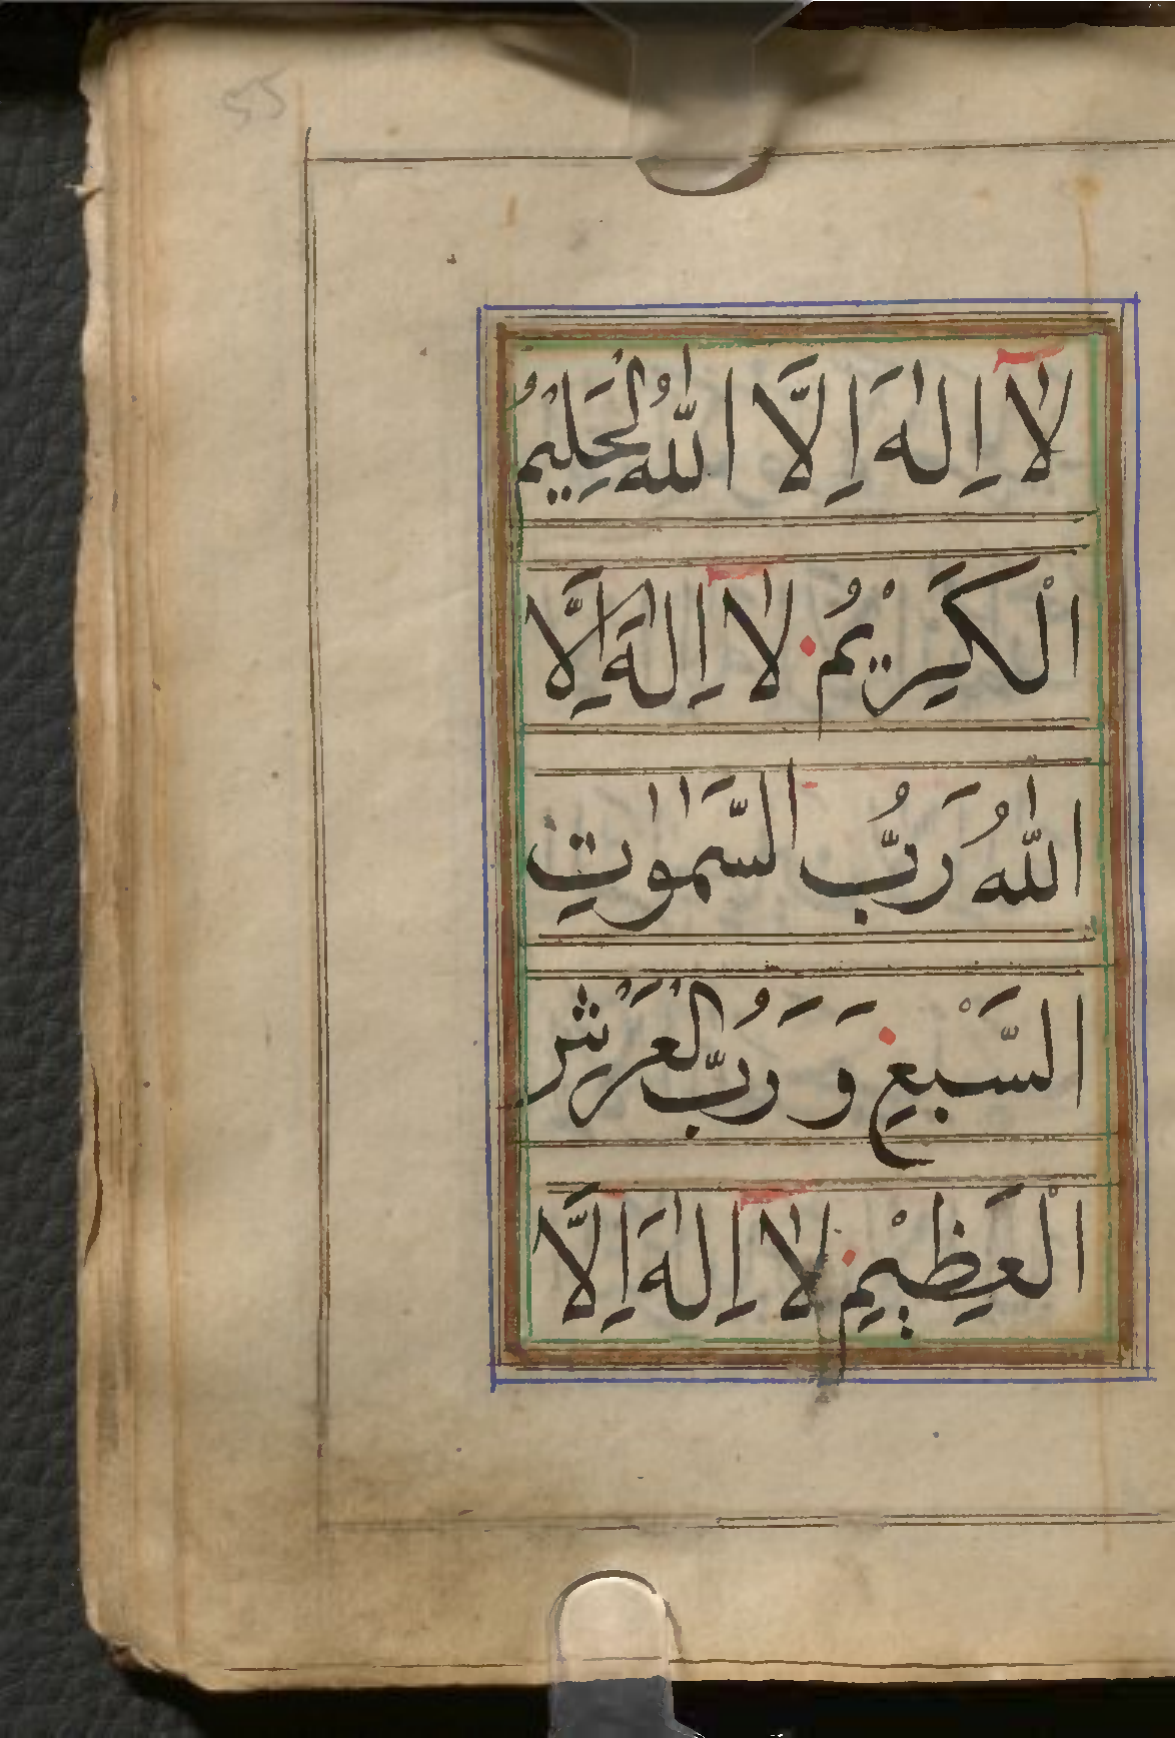 55
لَا اِلٰهَ اِلَّا اللّٰهُ الْحَلِيْمُ
الْكَرِيْمُ لَا اِلٰهَ اِلَّا
اللّٰهُ رَبُّ السَّمٰوٰتِ
السَّبْعِ وَ رَبُّ الْعَرْشِ
الْعَظِيْمِ لَا اِلٰهَ اِلَّا